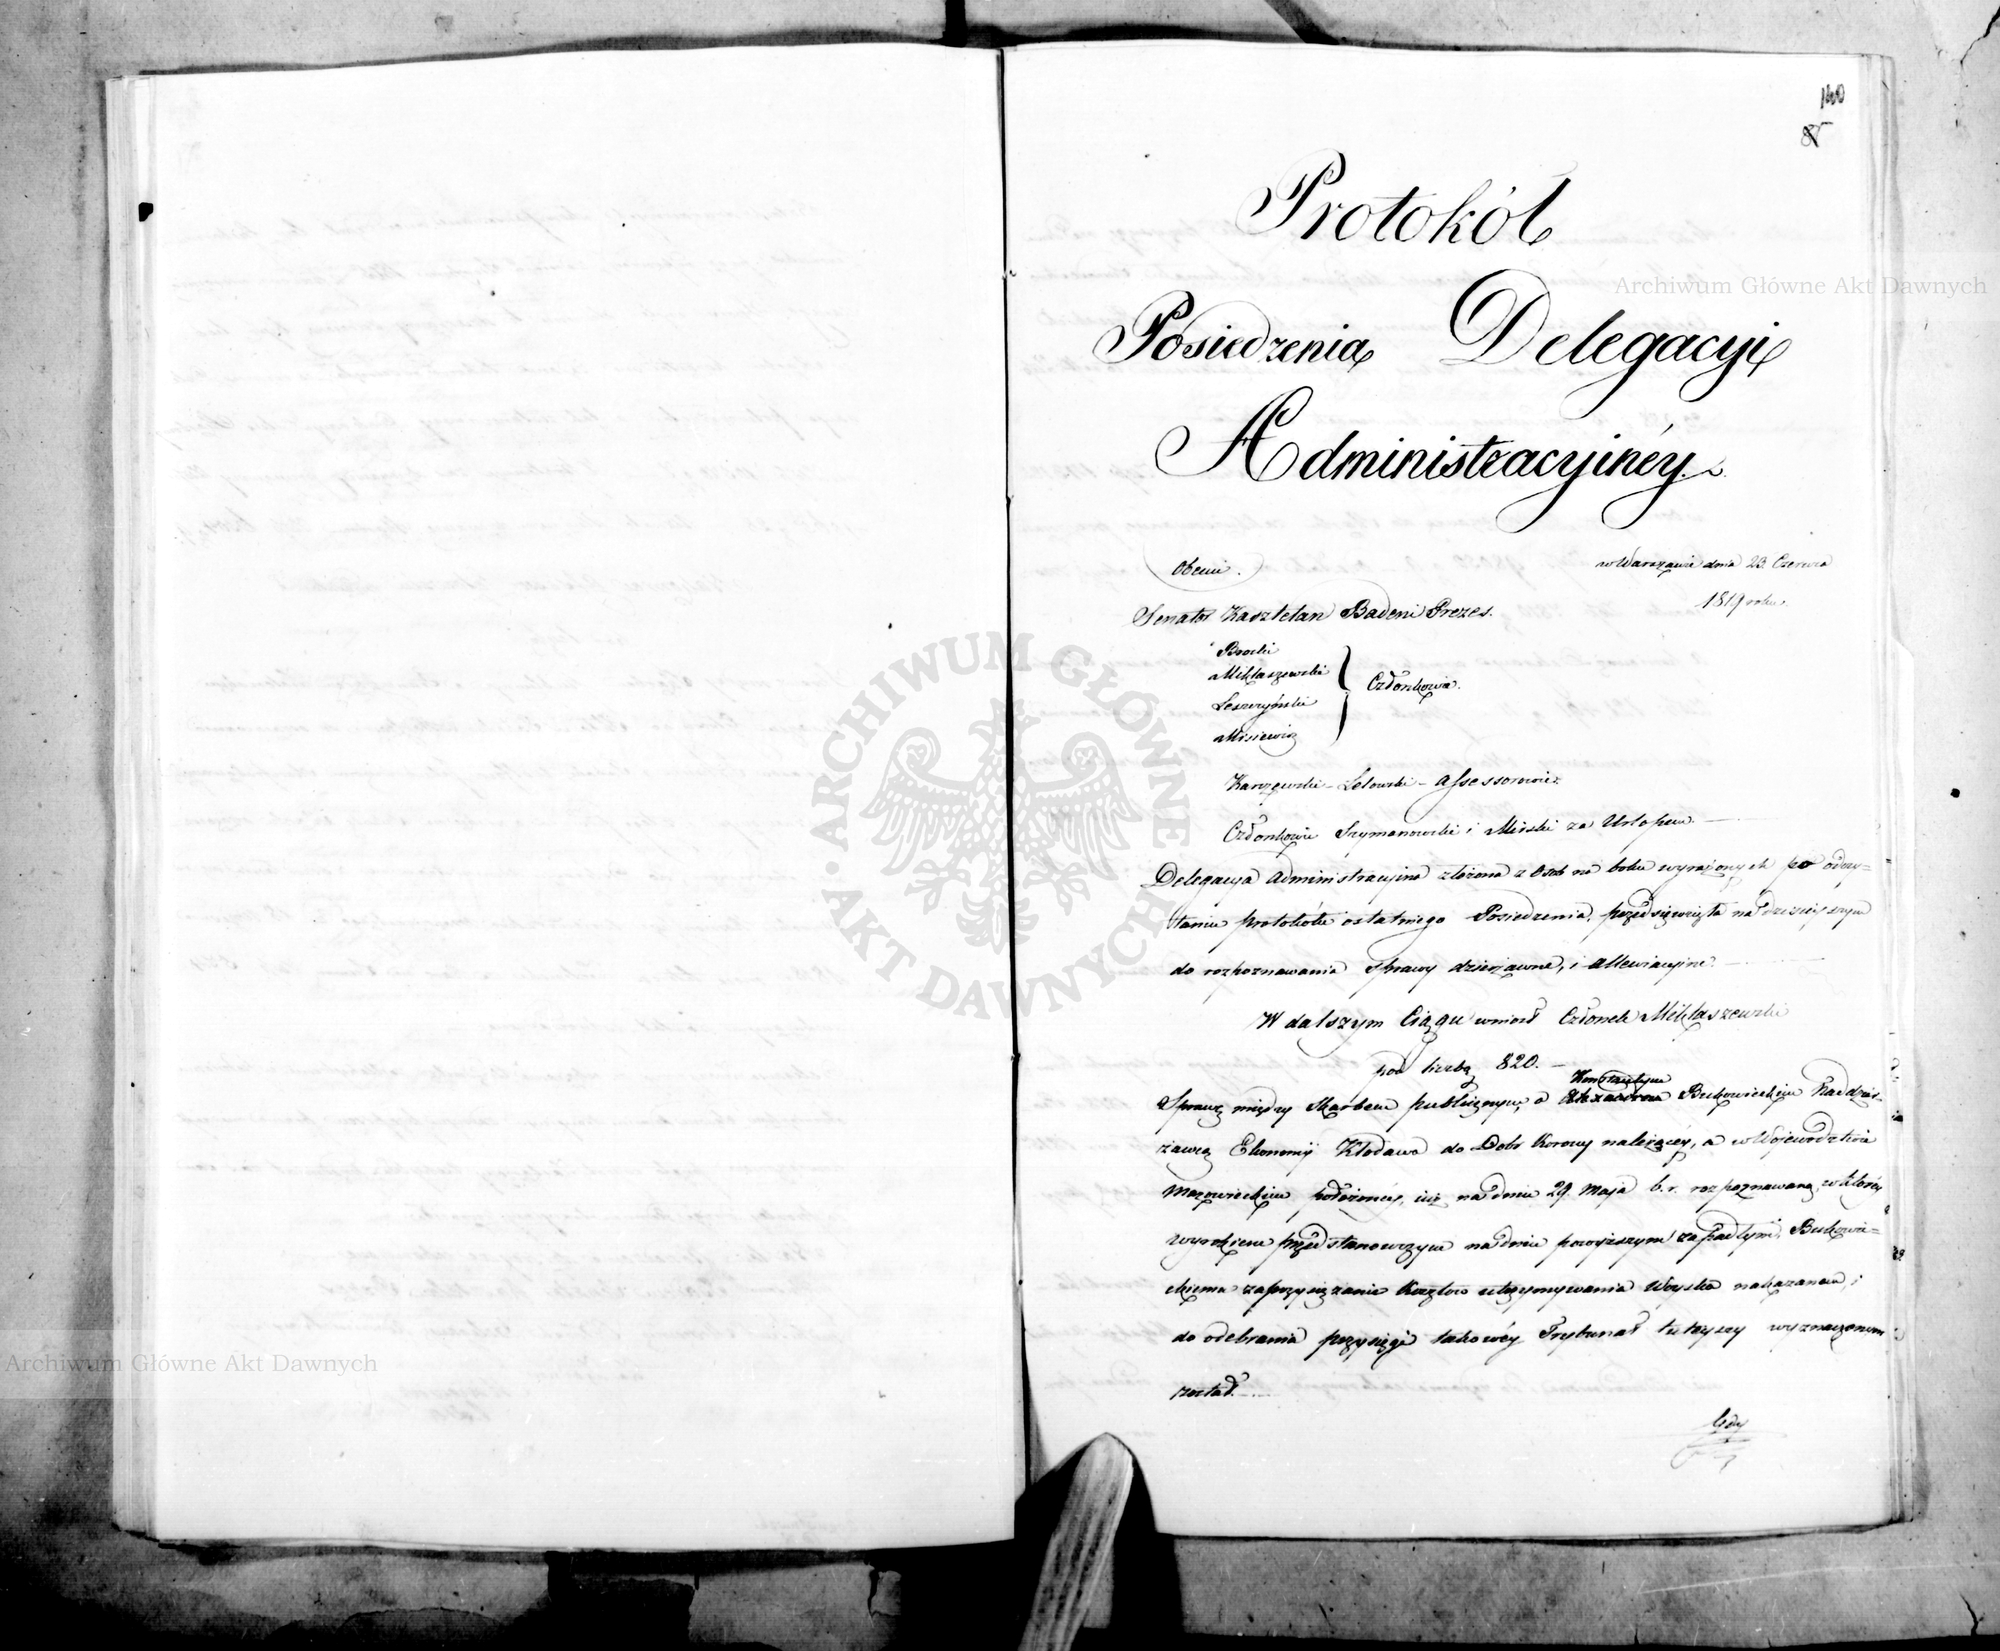 140
85
Protokół
Posiedzenia Delegacyi
Administracyinéy.
Obecni.
w Warszawie dnia 23. Czerwca
1819 roku.
Senator Kasztelan Badeni Prezes.
Brocki
Miklaszewski
Leszczyński
Misiewicz
Członkowie.
Karzewski - Lelowski - Assessorowie.
Członkowie Szymanowski i Miński za Urlopem.
Delegacya Administracyina złożona z Osób na boku wyrażonych po odczy-
taniu protokółu ostatniego Posiedzenia, przedsięwzięła na dzisieyszym
do rozpoznawania sprawy dzierżawne, i allewiacyine.
W dalszym Ciągu wniosł Członek Miklaszewski
pod liczbą 820.
Konstantym
Sprawę między Skarbem publicznym, a Alexandrem Bukowieckim Naddzier-
żawcą Ekonomii Kłodawa do Dobr Korony należącéy, a w Wojewodztwie
Mazowieckim położonéy, iuż na dniu 29. Maja b. r. rozpoznawaną, w któréy
wyrokiem przedstanowczym na dniu powyższym zapadłym, Bukowie-
ckiemu zaprzysiężenie Kosztow utrzymywania Woyska nakazanem, i
do odebrania przysięgi takowéy Trybunał tuteyszy wyznaczonym
został.
Gdy
Archiwum Główne Akt Dawnych
Archiwum Główne Akt Dawnych
ARCHIWUM GŁÓWNE · AKT DAWNYCH ·